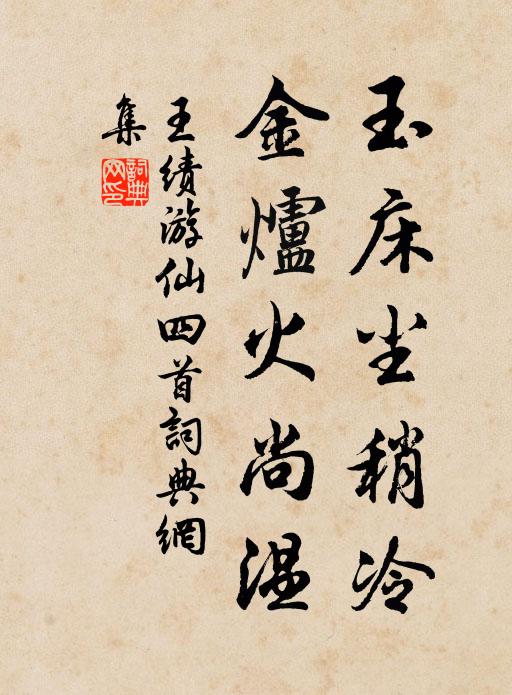 玉床尘稍冷
金爐火尚温
王绩游仙四首詞典網
集
詞典網印